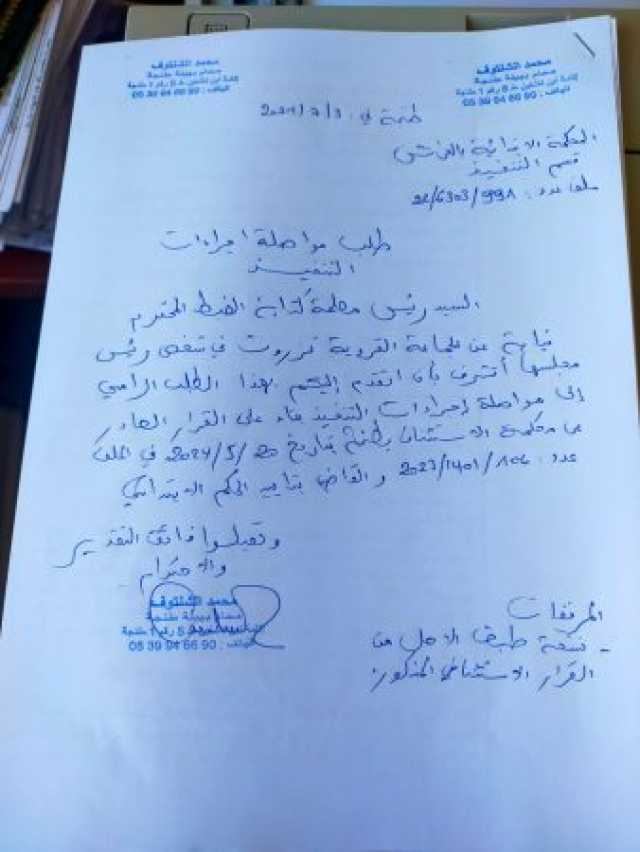 محمد الكنتوف
محام بهيئة طنجة
الهاتف : 05 39 94 66 90
محمد الكنتوف
محام بهيئة طنجة
الهاتف : 05 39 94 66 90
طنجة في
المحكمة الابتدائية بالعرائش
قسم التنفيذ
ملف عدد : 22/6303/998
طلب مواصلة اجراءات
التنفيذ
السيد رئيس مصلحة كتابة الضبط المحترم
نيابة عن الجماعة القروية في شخص رئيس
مجلسها أتشرف بأن اتقدم إليكم بهذا الطلب الرامي
إلى مواصلة إجراءات التنفيذ بناء على القرار الصادر
عن محكمة الاستئناف بطنجة بتاريخ 20 /5/ 2024 في الملف
عدد : 106 /1401/ 2023 و القاضي بتأييد الحكم الابتدائي
و تقبلوا فائق التقدير
والاحترام
محمد الكنتوف
الهاتف : 05 39 94 66 90
المرفقات
- نسخة طبق الاصل من
القرار الاستئنافي المذكور